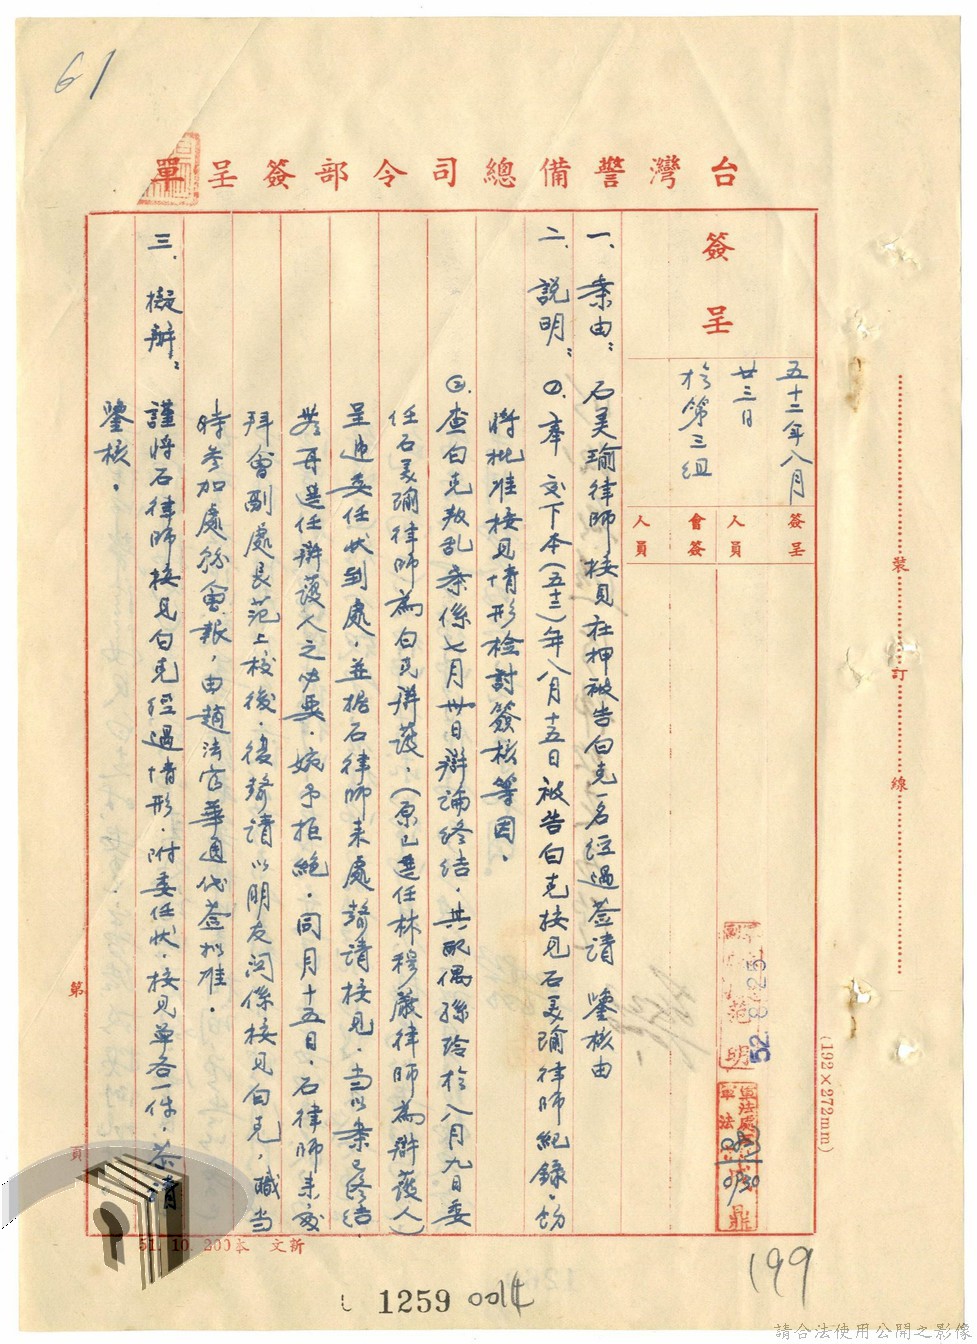 61
台灣警備總司令部簽呈單
簽呈
五十二年八月
廿三日
於第三組
簽呈
人員
會簽
人員
一、案由:石美瑜律師接見在押被告白克一名經過簽請 鑒核由
二、說明:①、奉 交下本(五十二)年八月十五日被告白克接見石美瑜律師紀錄,飭
將批准接見情形檢討簽核等因。
②、查白克叛乱案係七月卅日辯論終結,其配偶孫玲於八月九日委
任石美瑜律師為白克辯護,(原已選任林穆嚴律師為辯護人)
呈遞委任狀到處,並據石律師來處聲請接見,当以案已終結
無再選任辯護人之必要,婉予拒絕,同月十五日,石律師來處
拜會副處長范上校後,復聲請以朋友関係接見白克,職当
時參加處務會報,由趙法官華通代簽批准。
三、擬辦:謹將石律師接見白克經過情形,附委任狀,接見單各一件,恭請
鑒核。
52.8.25
0830
第
頁
裝
訂
線
(192×272mm)
51. 10. 200本 文新
1259 0014
199
請合法使用公開之影像